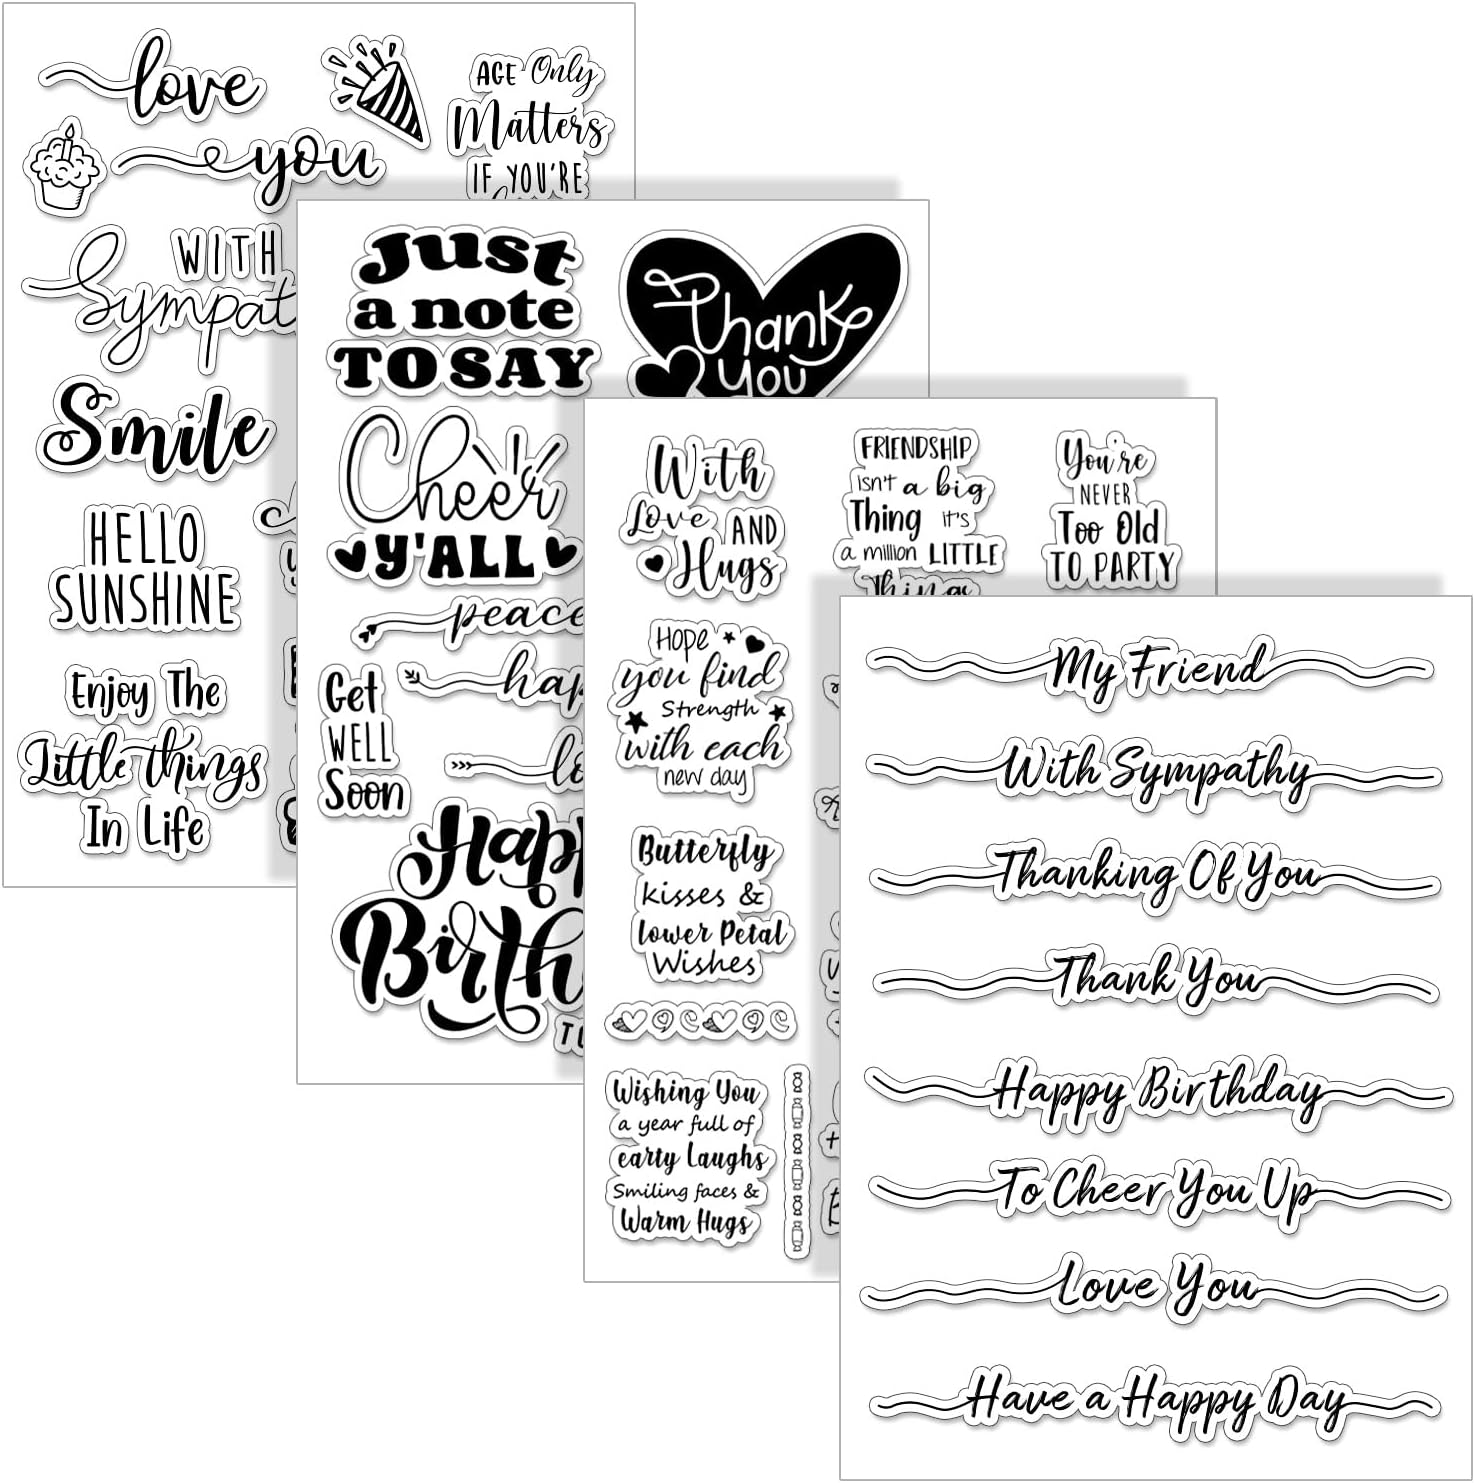 love
you
AGE Only
Matters
IF YOU'RE
WITH
Smile
HELLO
SUNSHINE
Enjoy The
Little things
In Life
Just
a note
TO SAY
Thank
you
Cheer
Y'ALL
peace
Get
WELL
Soon
With
Love AND
Hugs
Hope
you find
Strength
with each
new day
Butterfly
kisses &
lower Petal
Wishes
Wishing You
a year full of
earty Laughs
Smiling faces &
Warm Hugs
FRIENDSHIP
isn't a big
Thing it's
a million LITTLE
Things
You're
NEVER
Too Old
TO PARTY
My Friend
With Sympathy
Thanking Of You
Thank You
Happy Birthday
To Cheer You Up
Love You
Have a Happy Day